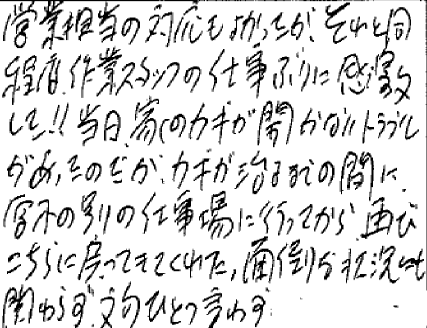 営業担当の対応もよかったが、それと同
程度、作業スタッフの仕事ぶりに感激
した!!当日、家のカギが開かないトラブル
があったのだが、カギが治るまでの間に、
宮木の別りの仕事場に行ってから再び
こちらに戻ってきてくれた。面倒な状況にも
関わらず、文句ひとつ言わず